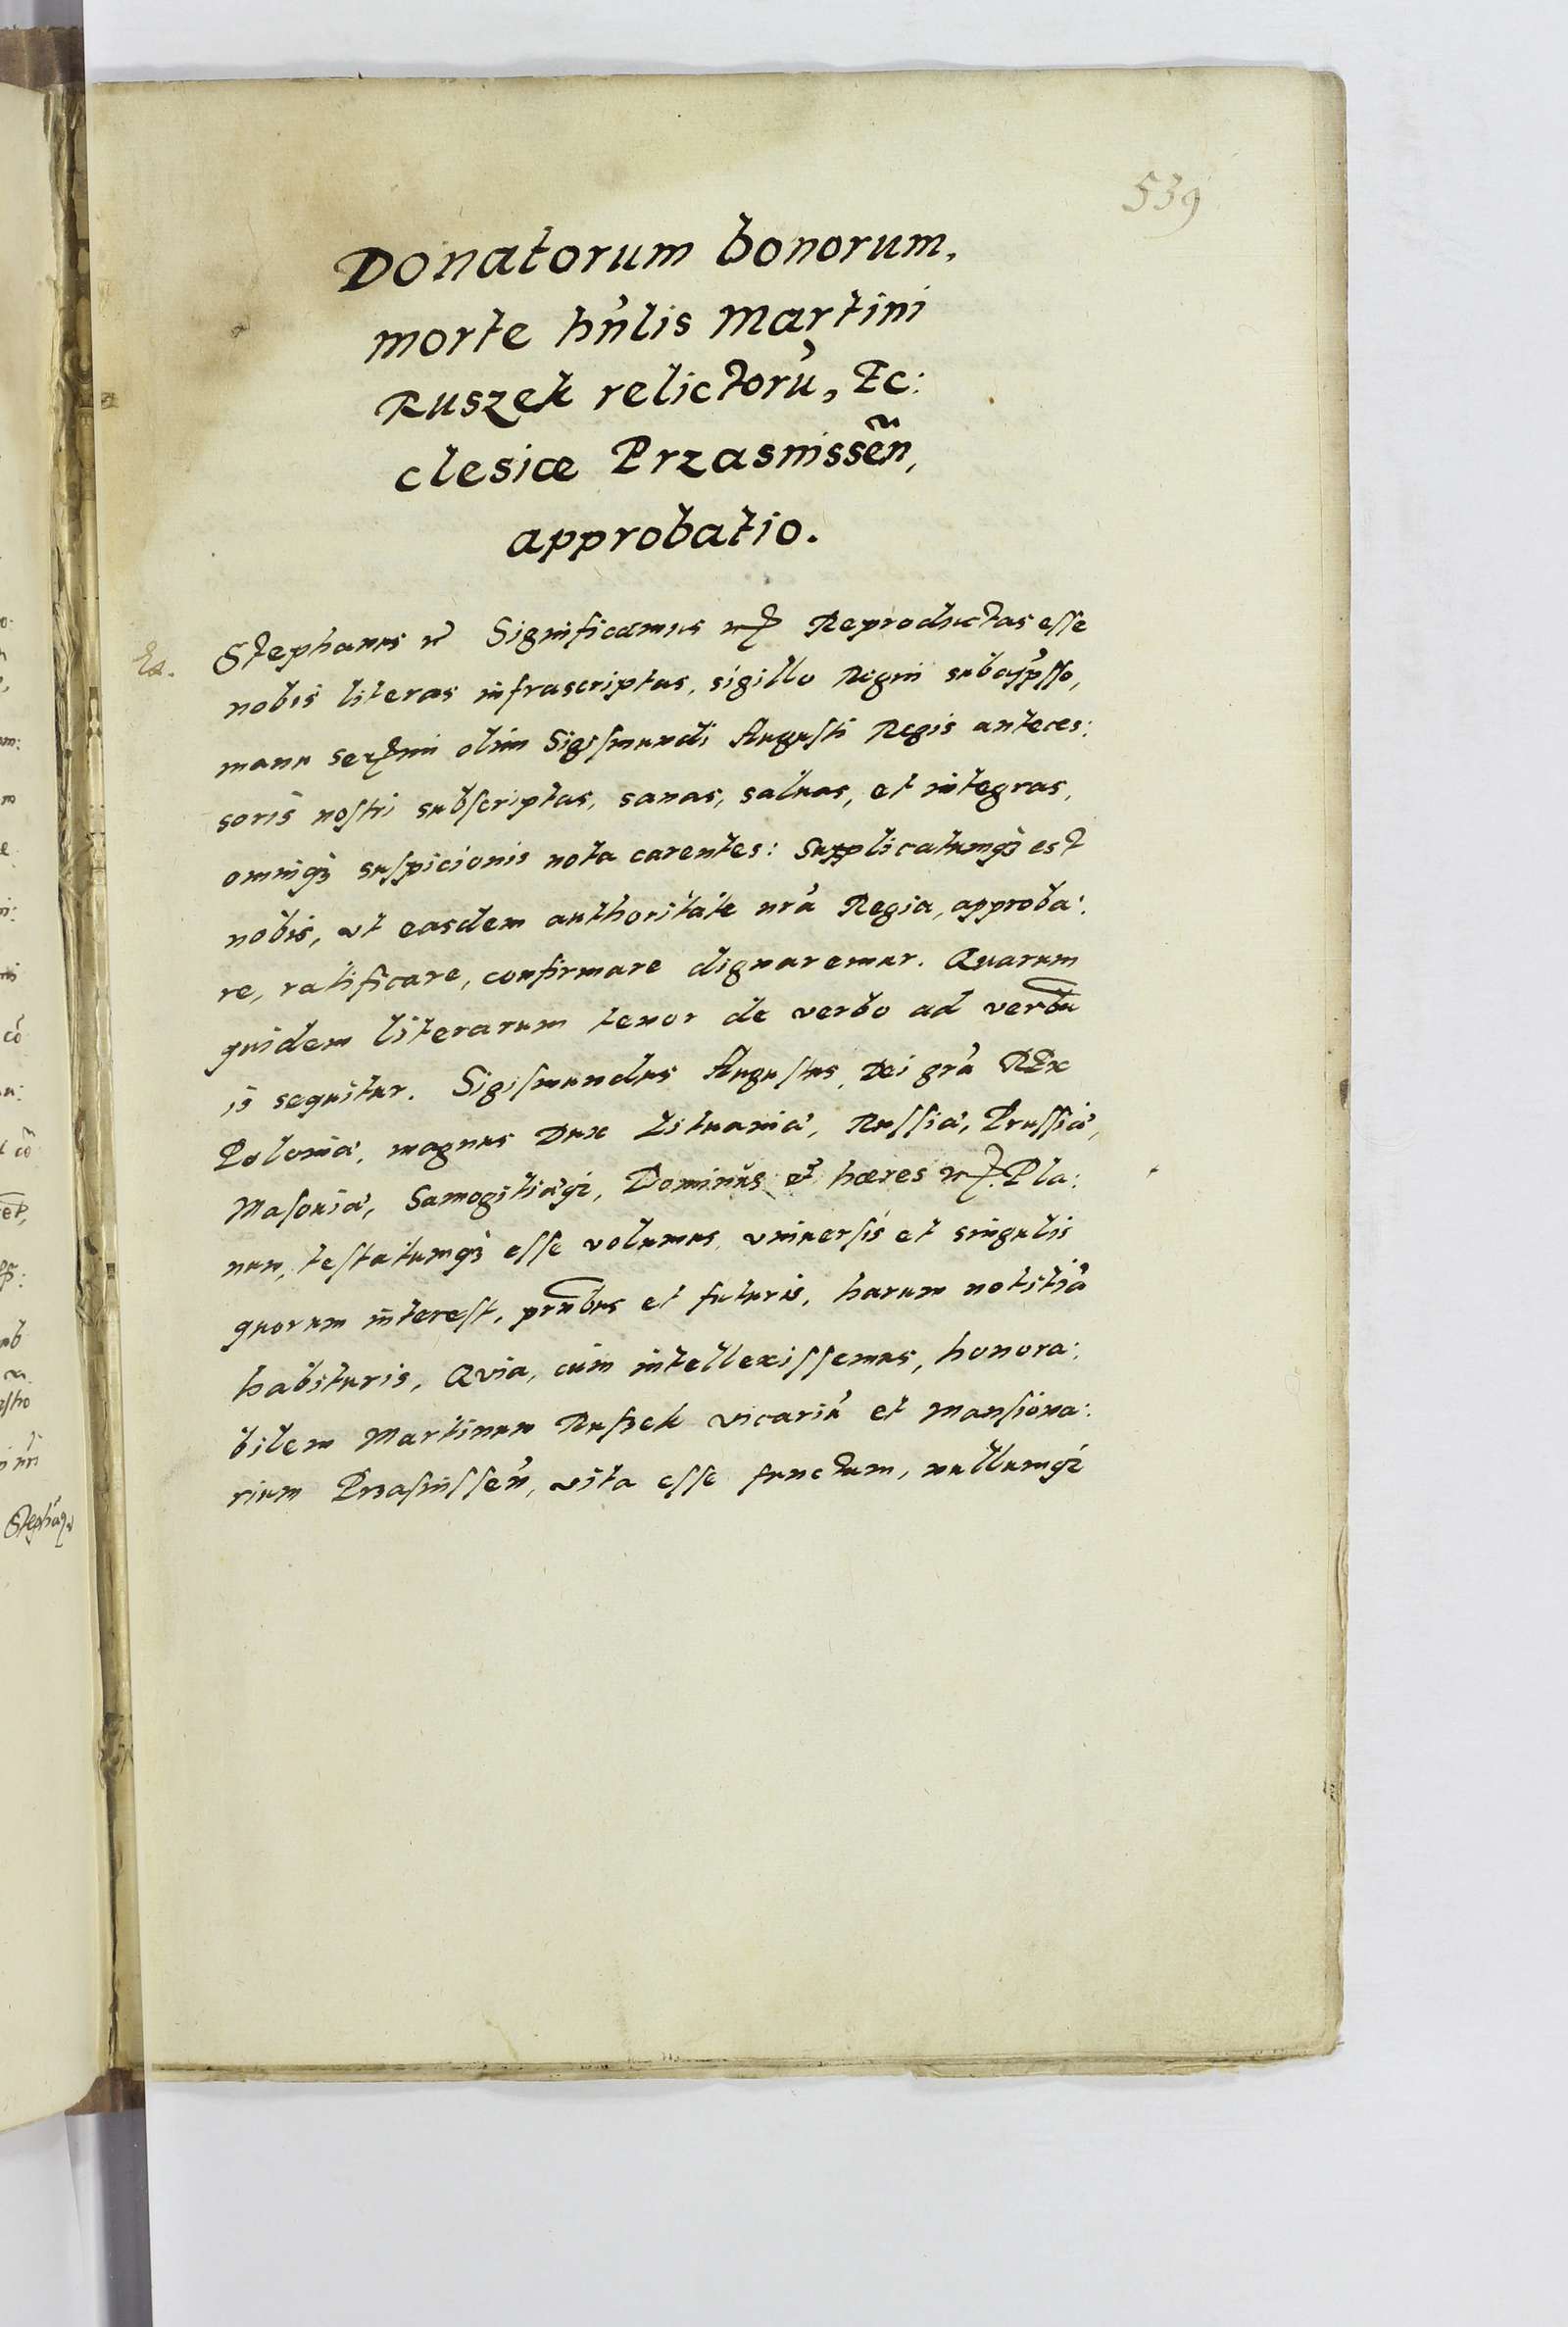 539
Donatorum bonorum,
morte hn̉lis Martini
Ruszek relictorů, Ec:
clesiæ Przasnissẽn,
approbatio.
Stephanus Significamus Reproductas esse
nobis literas infrascriptas, sigillo Regni subap̉ſſo,
manu olim Sigiſmundi Auguſti Regis anteces:
soris noſtri subſcriptas, sanas, saluas, et integras,
omniq; suſpicionis nota carentes: Supplicatumq; est
nobis, vt easdem authoritate nr̉a Regia, approba:
re, ratificare, confirmare dignaremur. Quarum
quidem literarum tenor de verbo ad verbũ
is sequitur. Sigiſmundus Auguſtus, Dei gr̉a REx
Poloniæ, magnus Dux Lituaniæ, Ruſſiæ, Pruſſiæ,
Maſouiæ, Samogitiæq;, Dominus et hæres Pla:
num, teſtatumq; eſſe volumus, vniuerſis et singulis
quorum intereſt, pr̃ñbus et futuris, harum notitiå
habituris, Quia, cùm intellexiſſemus, honora:
bilem Martinum Ruſzek vicariů et Manſiona:
rium Przaſniſſen̉, vita eſſe functum, nullumq;